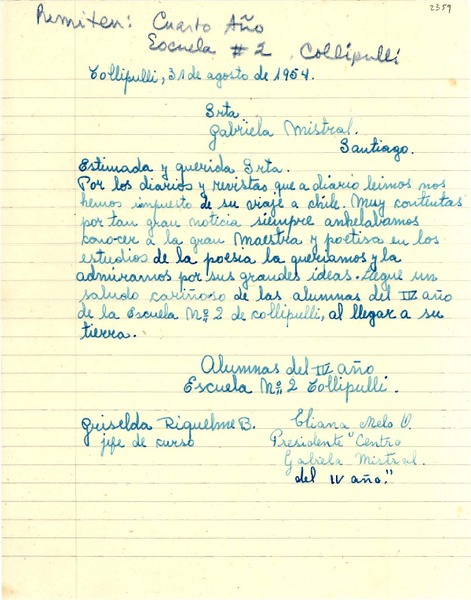 2359
Remiten: Cuarto Año
Escuela # 2 Collipulli
Collipulli, 31 de agosto de 1954.
Srta
Gabriela Mistral.
Santiago.
Estimada y querida Srta.
Por los diarios y revistas que a diario leimos nos
hemos impuesto de su viaje a chile. Muy contentas
por tan gran noticia siempre anhelabamos
conocer a la gran Maestra y poetisa en los
estudios de la poesia la queriamos y la
admiramos por sus grandes ideas. Llegue un
saludo cariñoso de las alumnas del IV año
de la Escuela No 2 de collipulli, al llegar a su
tierra.
Alumnas del IV año
Escuela No 2 Collipulli.
Griselda Riquelme B.
jefe de curso
Eliana Melo O.
Presidente "Centro
Gabiela Mistral.
del IV año."